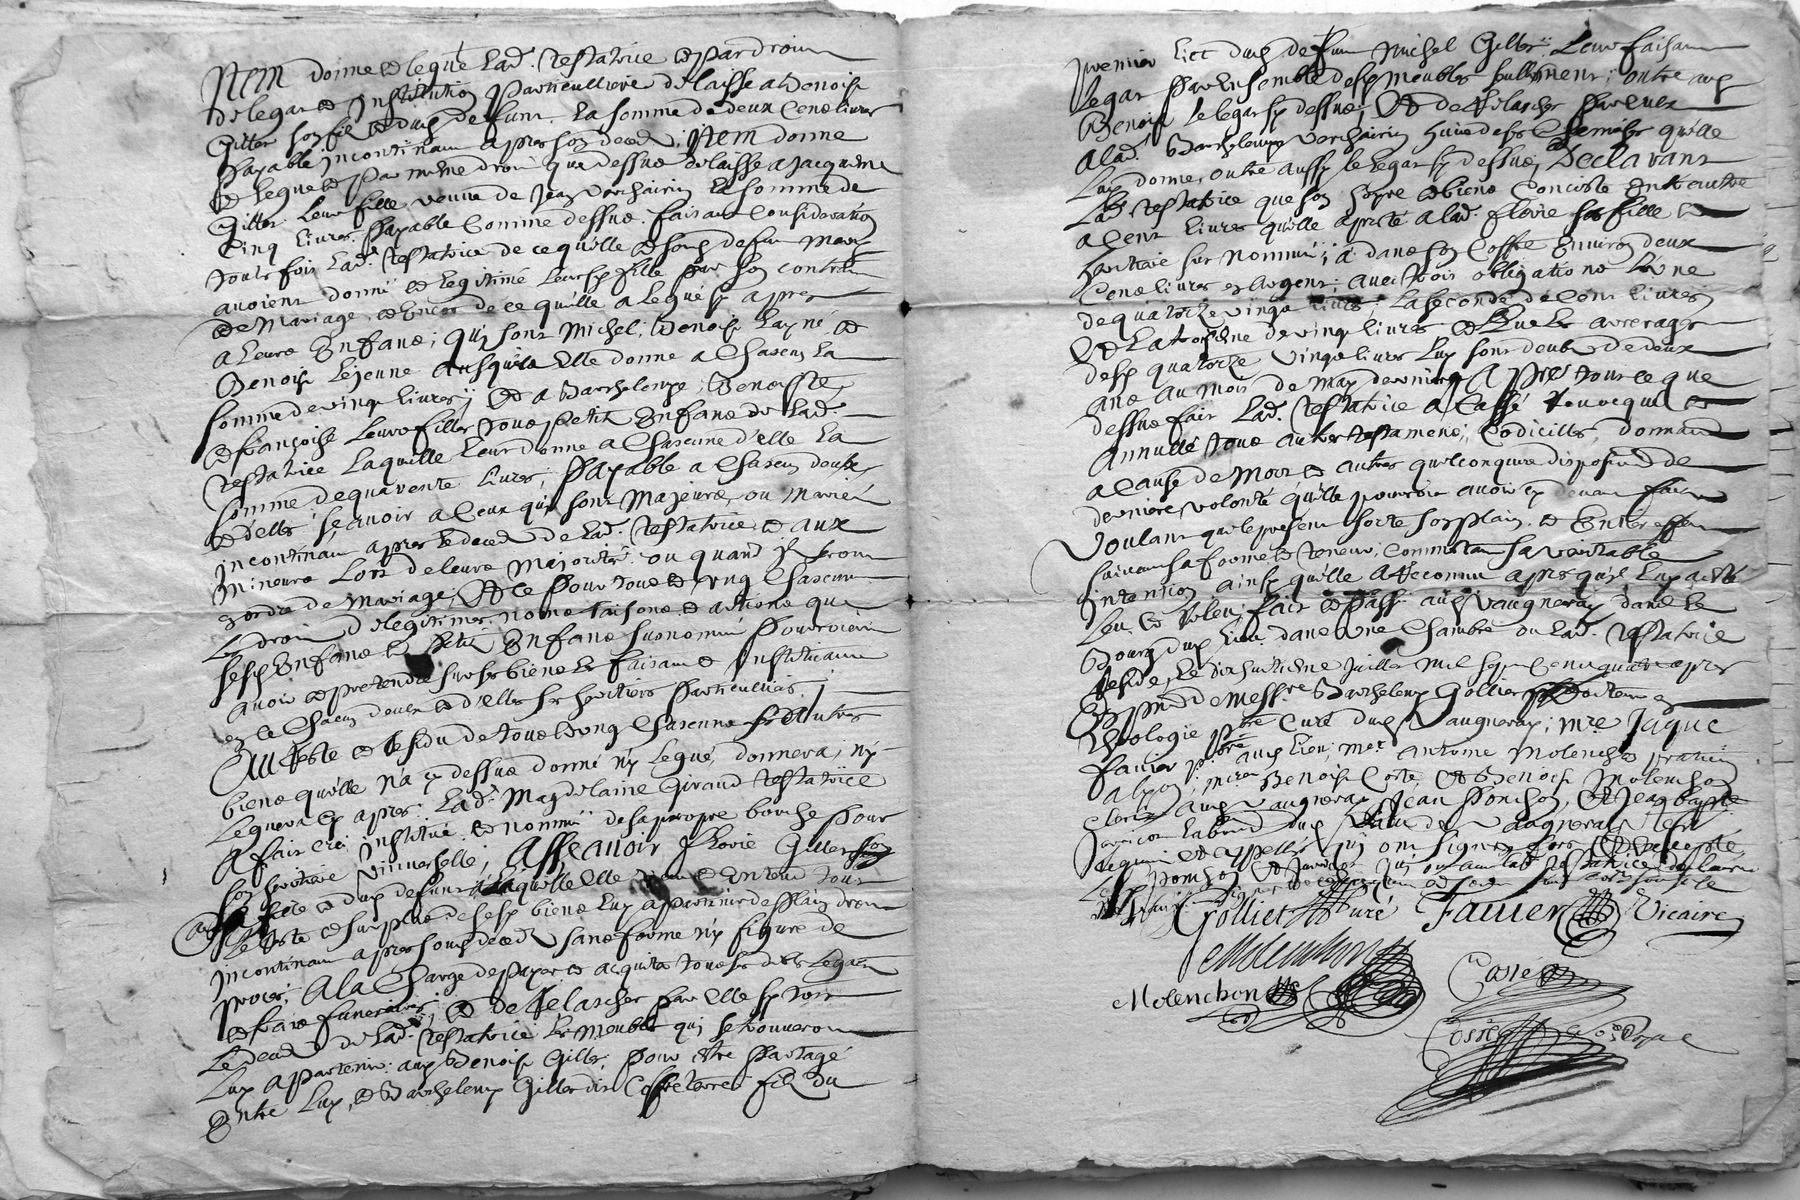 Item donne et legue lad. testatrice et par droit
de legat et Institution particulliere delaisse a Benoist
Gillet son filz et dud. defunt la somme de deux cent livres
payable incontinant apres son deced, Item donne
et legue et par mesme droit que dessus delaisse a Jacqueme
Gillet leur fille veuve de Jean Verchairin la somme de
Cinq livres payable Comme dessus faisant Consideration
toute fois lad. testatrice de ce quelle et son defunt Mary
avoient donné et legitimé leursd. fille par son contrat
de Mariage, et Encor de ce quelle a legué cy apres
a leurs Enfans, Qui sont Michel, Benoist layné, et
Benoist lejeune ausquels Elle donne a Chascun la
somme de vingt livres, Et a Barthelemye, Benoiste
et francoise leurs filles tous petits Enfans de lad.
testatrice laquelle leur donne a Chascune d'elle la
somme de quarente livres, payable a Chascun deux
et d'elles scavoir a Ceux qui sont Majeurs, ou mariés
incontinant apres le deced de lad. testatrice et aux
mineurs lors de leurs majorité ou quand ilz feront
ordre de mariage, Et Ce pour tous et ung Chascun
les droits de legitimes noms raisons et actions que
sesd. Enfans et petits Enfans susnommé pourroient
avoir et pretendre sur ses biens les faisant et Instituant
en Ce Chascun deux et d'elles ses heritiers particulliers
Au reste et residu de tous et ung Chascuns ses autres
biens quelle n'a cy dessus donné ny legué, donnera, ny
leguera cy apres lad. Magdelaine Giraud testatrice
A fait Créé institué et nommé de sa propre bouche pour
son heritiere Universelle, Assavoir Florie Gillet sa
fille et dud. defunt a laquelle Elle veut et Entend tout
le reste et surplus de sesd. biens luy apartenir de plain droit
incontinant apres sond. deced sans forme ny figure de
proces, A la Charge de payer et acquiter tous ses dits legats
et frais funeraires, et de relascher par elle sy tost
le deced de lad. testatrice les meubles qui se trouveront
luy appartenir aud. Benoist Gillet pour estre partagé
Entre luy, et Barthelemy Gillet dit Coffretterre filz du
premier lict dud. defunt Michel Gillet Leur faisant
legat par ensemble desd. meubles seullement, outre aud.
Benoist le legat cy dessus, et de relascher par elle
a lad. Barthelemye Verchairin huict de ses Chemises qu'elle
luy donne, outre aussy le legat cy dessus, Declarant
lad. testatrice que son hoyre et biens Conciste Entre autre
a Cent livres qu'elle a presté a lad. florie sa fille et
heritiere sus nommée, a dans son Coffre Environ deux
Cens livres en Argent, avec trois obligations l'une
de quatorze vingt livres, la seconde de Cent livres
Et la troisieme de vingt livres et que les arrerages
desd. quatorze vingt livres luy sont deubs de deux
ans au mois de may dernier Apres tout ce que
dessus fait lad. testatrice a Cassé revocqué et
Annullé tous autres testamens, Codicilles, donnation
a Cause de mort et autres quelconques disposition de
derniere volonté qu'elle pourroit avoir cy devant faite
Voulant que le present sorte son plain et Entier effet
suivant sa forme et teneur, Comme etant sa veritable
intention ainsy qu'elle A reconnu apres qu'il luy a esté
leu et releu, fait et passé aud. Vaugneray dans le
Bourg dud. lieu dans une Chambre ou lad. testatrice
reside, le dix huitième Juillet mil sept Cent quatre apres
En presence de Messre Barthelemy Golliet Docteur en
theologie pbre Curé dud. Vaugneray, mre Jaque
fauier pbre aud. lieu, mre Antoine Molenchon praticien
a lyon, mre Benoist Coste, Et Benoist Molenchon
clerc aud. Vaugneray Jean Ponchon, Et Jean baptiste
requis et appellés qui ont signé
Golliet Curé Fauier Vicaire
Molenchon
Molenchon Coste